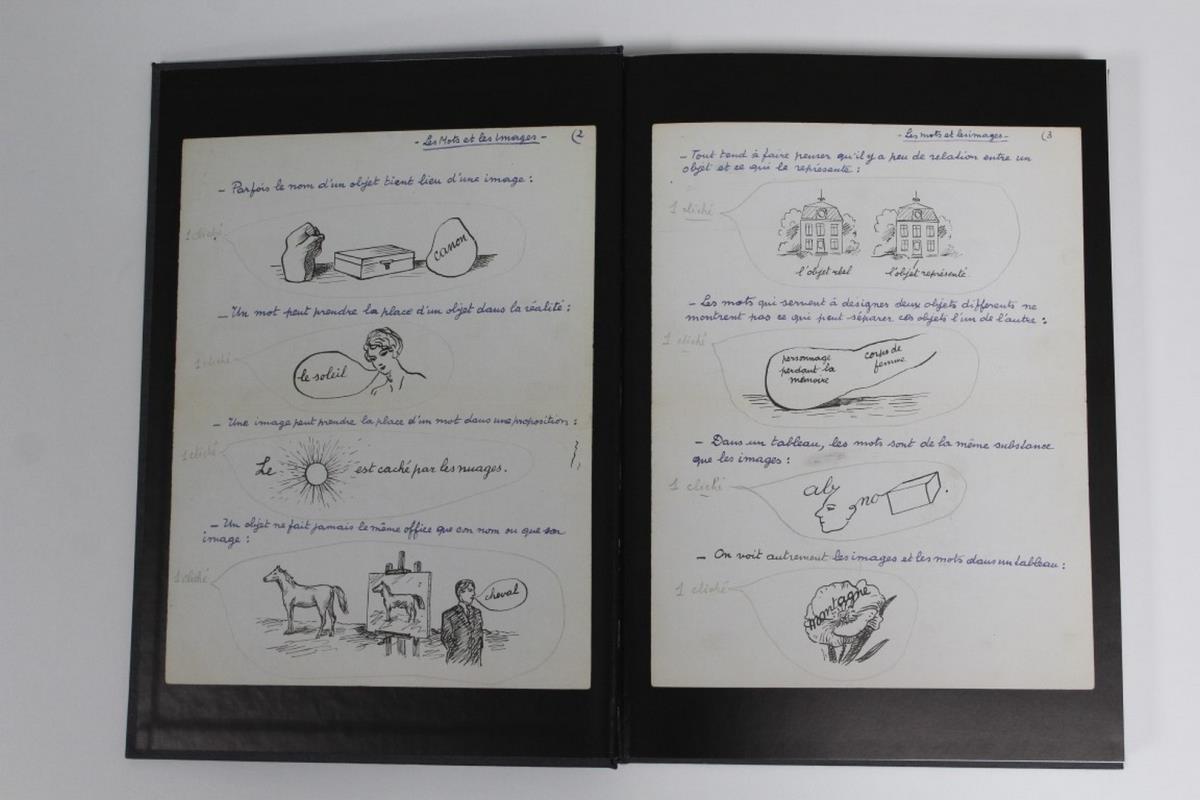 - Les Mots et les Images - (2
- Parfois le nom d'un objet tient lieu d'une image :
1 cliché
canon
- Un mot peut prendre la place d'un objet dans la réalité :
1 cliché
le soleil
- Une image peut prendre la place d'un mot dans une proposition :
1 cliché
Le est caché par les nuages.
- Un objet ne fait jamais le même office que son nom ou que son
image :
1 cliché
cheval
- Les mots et les images - (3
- Tout tend à faire penser qu'il y a peu de relation entre un
objet et ce qui le représente :
1 cliché
l'objet réel l'objet représenté
- Les mots qui servent à désigner deux objets différents ne
montrent pas ce qui peut séparer ces objets l'un de l'autre :
1 cliché
personnage
perdant la
mémoire
corps de
femme
- Dans un tableau, les mots sont de la même substance
que les images :
1 cliché
no
- On voit autrement les images et les mots dans un tableau :
1 cliché
montagne